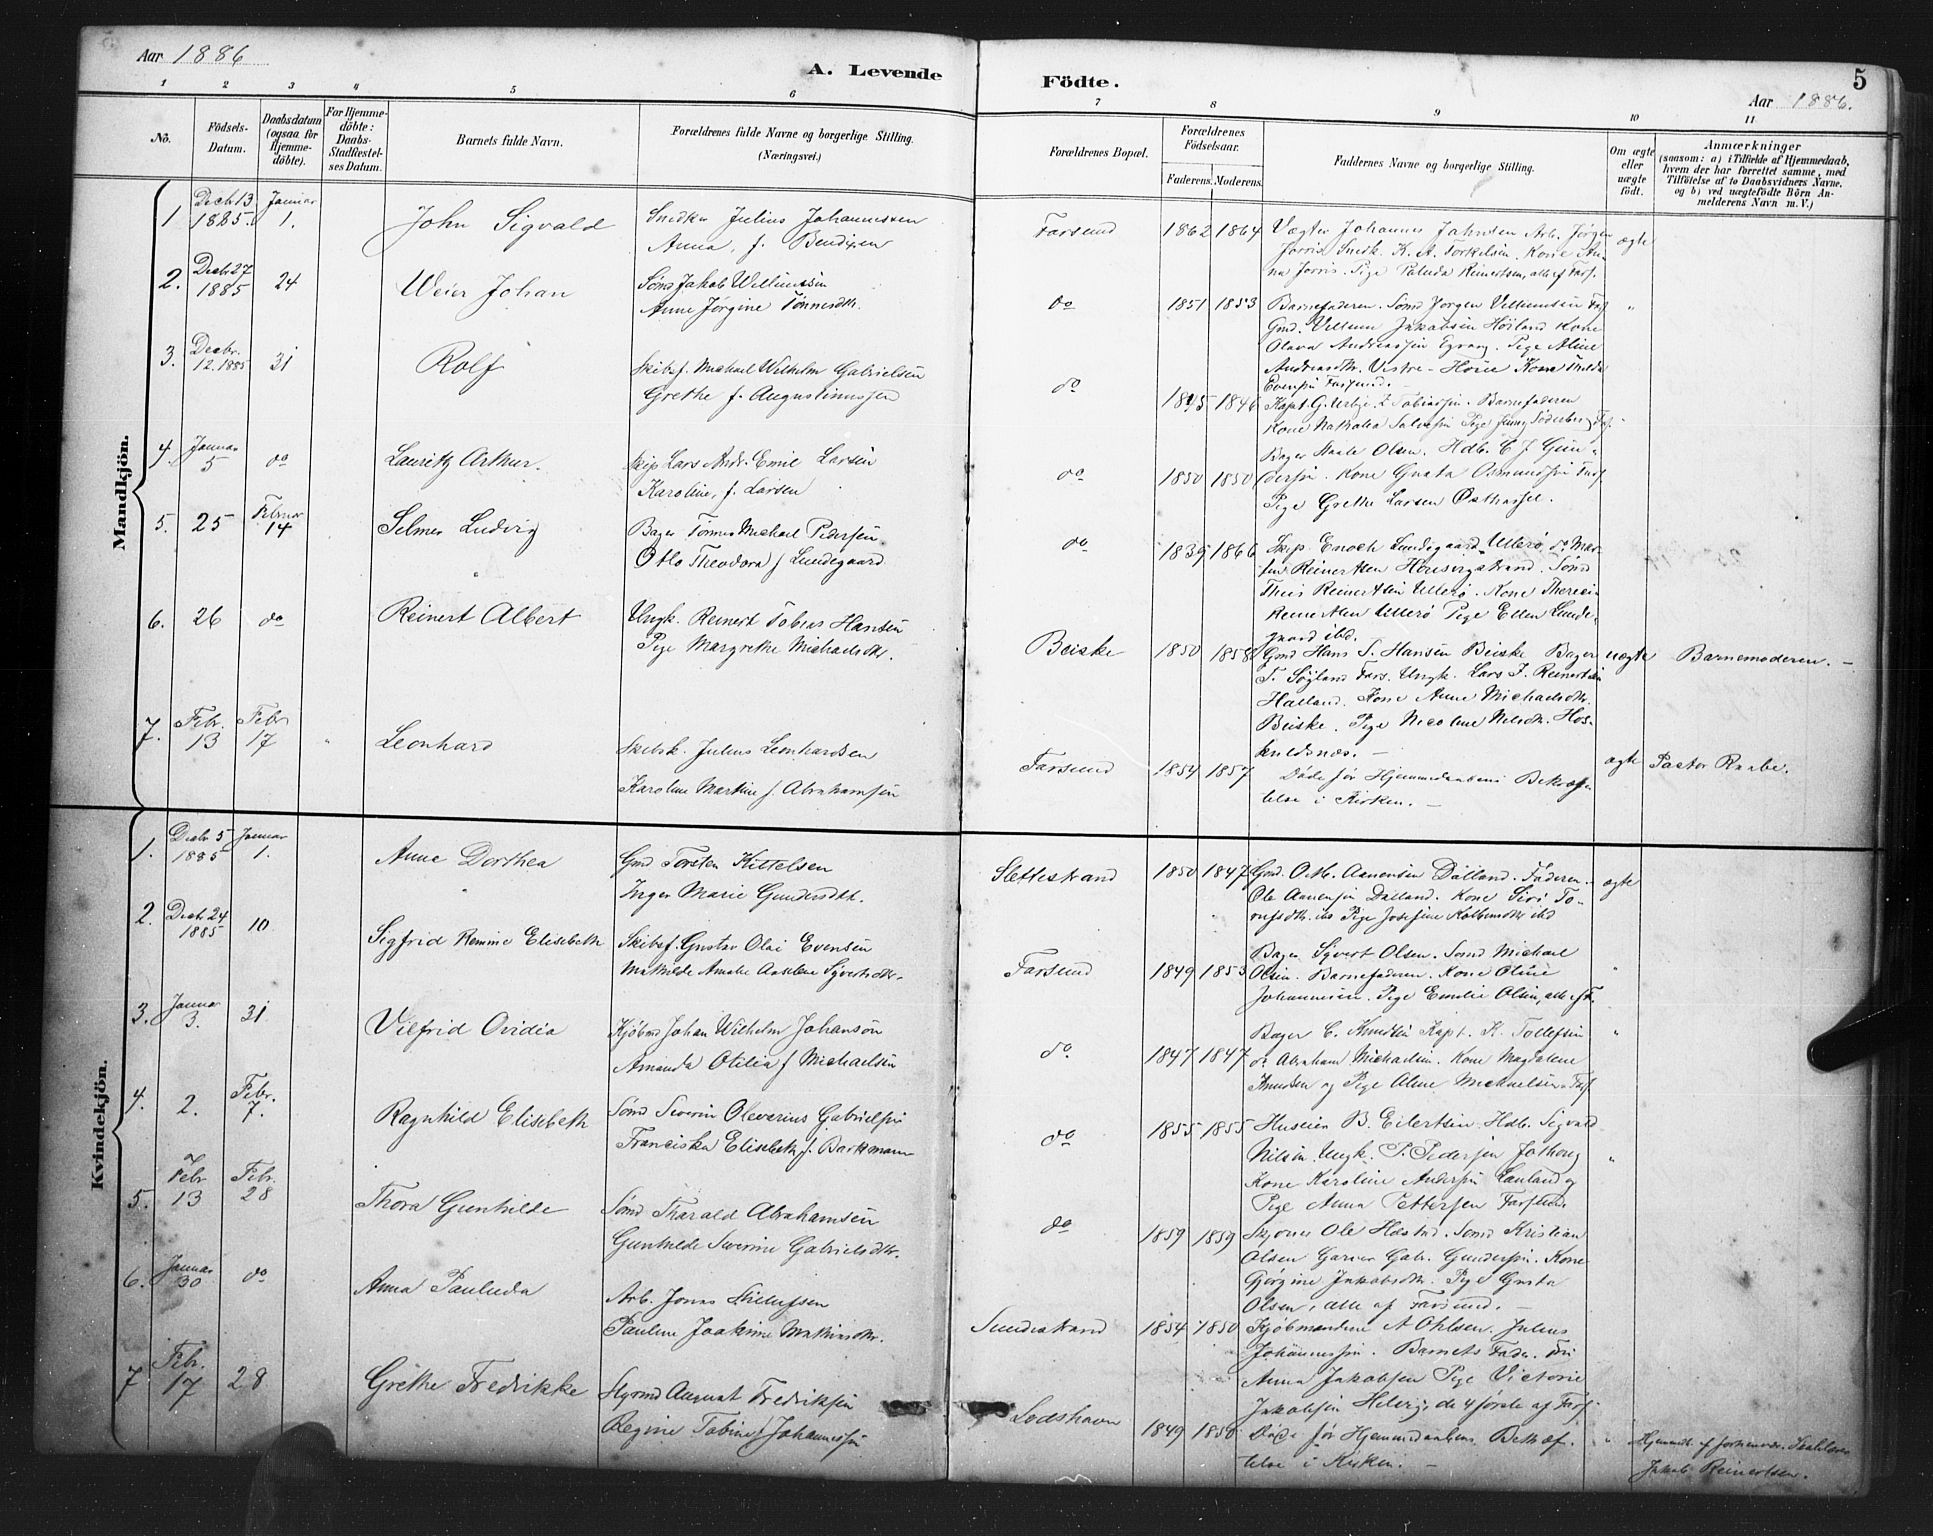 Aar 1886
A. Levende
Födte.
5
Aar 1886.
1 2 3 4 5 6
7 8 9 10 11
No.
Födsels-
Datum.
Daabsdatum
(ogsaa for
Hjemme-
döbte).
For Hjemme-
döbte:
Daabs-
Stadfæstel-
ses Datum.
Barnets fulde Navn.
Forældrenes fulde Navne og borgerlige Stilling.
(Næringsvei.)
Forældrenes Bopæl.
Forældrenes
Födselsaar.
Faderens. Moderens.
Faddernes Navne og borgerlige Stilling.
Om ægte
eller
uægte
födt.
Anmærkninger
(saasom: a) i Tilfælde af Hjemmedaab,
hvem der har forrettet samme, med
Tilföielse af to Daabsvidners Navne,
og b) ved uægtefödte Börn An-
melderens Navn m. V.)
Mandkjön.
1 Decbr 13 1885. Januar 1. John Sigvald
Snedker Julius Johannessen
Anna, f. Bendixen
Farsund 1862 1864
Vægter Johannes Johnsen Arb. Jørgen
Jorris Snedk. K. A. Torkelsen, Kone An-
na Jorris. Pige Reinertsen, alle af Fars.
ægte
2. Decbr 27 1885 24 Weier Johan
Sømd Jakob Willumsen
Anne Jørgine Tønnesdtr.
do 1851 1853
Barnefaderen. Sømd Jørgen Villumsen Fars
Gmd. Villum Jakobsen Höiland Kone
Olava Andreassen Egvaag. Pige Aline
Andreasdtr. Vestre-Hone Kone Thilda
Evensen Farsund.
"
3. Decbr. 12. 1885 31 Rolf
Skibsf. Michael Wilhelm Gabrielsen
Grethe f. Augustinussen
do 1845 1846
Kapt. G. Tobiassen. Barnefaderen
Kone Nathalia Salvesen Pige Jenny Söderberg Fars.
4. Januar 5 do Lauritz Arthur.
Skip Lars Andr. Emil Larsen
Karoline, f. Larsen
do 1850 1850
Bager Staale Olsen. Hdb. C. J. Gun-
dersen. Kone Gusta Osmundsen Fars.
Pige Grethe Larsen Østhassel.
5. 25 Februar 14 Selmer Ludvig
Bager Tønnes Michael Pedersen
Otto Theodora f Lundegaard
do 1839 1866
Skip. Enoch Lundegaard Ullerø do Mar-
Reinertsen Sømd
Theis Reinertsen Ullerø. Kone
Reinertsen Ullerø Pige Ellen Lunde-
gaard ibd.
6. 26 do Reinert Albert
Ungk. Reinert Tobias Hansen
Pige Margrethe Michaelsdtr.
Beiske 1850 1858
Gmd Hans T. Hansen Beiske Bager
T. Søyland Fars. Ungk. Lars T. Reinertsen
Haaland. Kone Anne Michaelsdtr.
Beiske. Pige Nicoline Nilsdtr. Hos-
kuldsnæs. —
uægte Barnemoderen. —
7. Febr. 13 Febr 17 " Leonhard
Skibsk. Julius Leonhardsen
Karoline Martine f. Abrahamsen
Farsund 1854 1857
Døde før Hjemmedaabens Bekræf-
telse i Kirken. —
ægte Pastor Raabe.
Kvindekjön.
1. Decbr 5 1885 Januar 1. Anne Dorthea
Gmd Torsten Kittelsen
Inger Marie Gundersdtr.
Slettestrand 1850 1847
Gmd. O. M. Aanensen Dalland. Faderen.
Ole Aanensen Dalland. Kone Siri To-
dtr. ibd Pige Josefine Kolbensdtr ibd
ægte
2. Decbr 24 1885 10 Sigfrid Remine Elisebeth
Skibsf. Gustav Olai Evensen
Mathilde Amalie Aaselene Syvertsdtr.
Farsund 1849 1853
Bager Syvert Olsen. Sømd Michael
Olsen. Barnefaderen. Kone Oline
Johannesen. Pige Emilie Olsen, alle af F.
"
3. Januar 3. 31 Vilfrid Ovidia
Kjøbmd Johan Wilhelm Johanson
Amanda Otilia f Michaelsen
do. 1847 1847
Bager C. Knudsen Kapt. K. Tollefsen
do Abraham Michaelsen. Kone Magdalene
Knudsen og Pige Aline Michaelsen Fars.
"
4. 2. Febr. 7. Ragnhild Elisebeth
Sømd Severin Olevarius Gabrielsen
Franciska Elisebeth f. Bartmann
do 1855 1855
Huseier B. Eilertsen. Hdb. Sigvald
Nilsen. Ungk. P. Pedersen
Kone Karoline Andersen Lauland og
Pige Anna Pettersen Farsund.
"
5. Febr 13 Febr. 28 Thora Gunhilde
Sømd Tharald Abrahamsen
Gunhilde Severine Gabrielsdtr.
do 1859 1859
Ole Sømd Kristian
Olsen Garver Gab. Gundersen. Kone
Gjørgine Jakobsdtr. Pige Gusta
Olsen, alle af Farsund. —
6. Januar 30 do Anna Pauluda
Arb. Jonas
Pauline Joakime Mathiasdtr.
Sundestrand 1854 1850
Kjøbmændene A Ohlsen. Julius
Johannessen. Barnets Fader. Fru
Anna Jakobsen Pige Victorie
Jakobsen Helvig, de 4 første af Fars.
7 Febr. 17 28 Grethe Fredrikke
Styrmd August Fredriksen
Regine Tobine f Johannessen
Lodshavn 1849 1850
Døde før Hjemmedaabens Bekræf-
telse i Kirken. —
" Hjemmedt. af
Jakob Reinertsen.